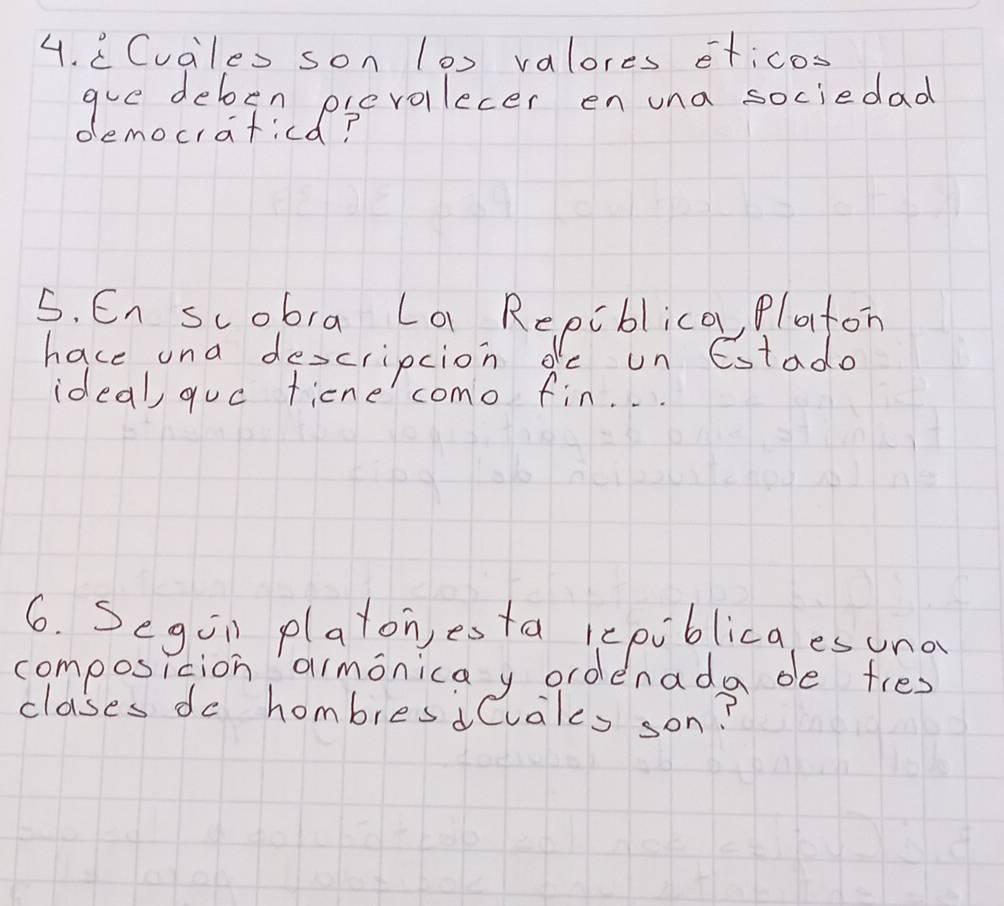 4. ¿Cuáles son los valores éticos
que deben prevalecer en una sociedad
democrática?
5. En su obra La República, Platón
hace una descripción de un Estado
ideal, que tiene como fin...
6. Según platón, esta república, es una
composición armónica y ordenada de tres
clases de hombres ¿Cuáles son?